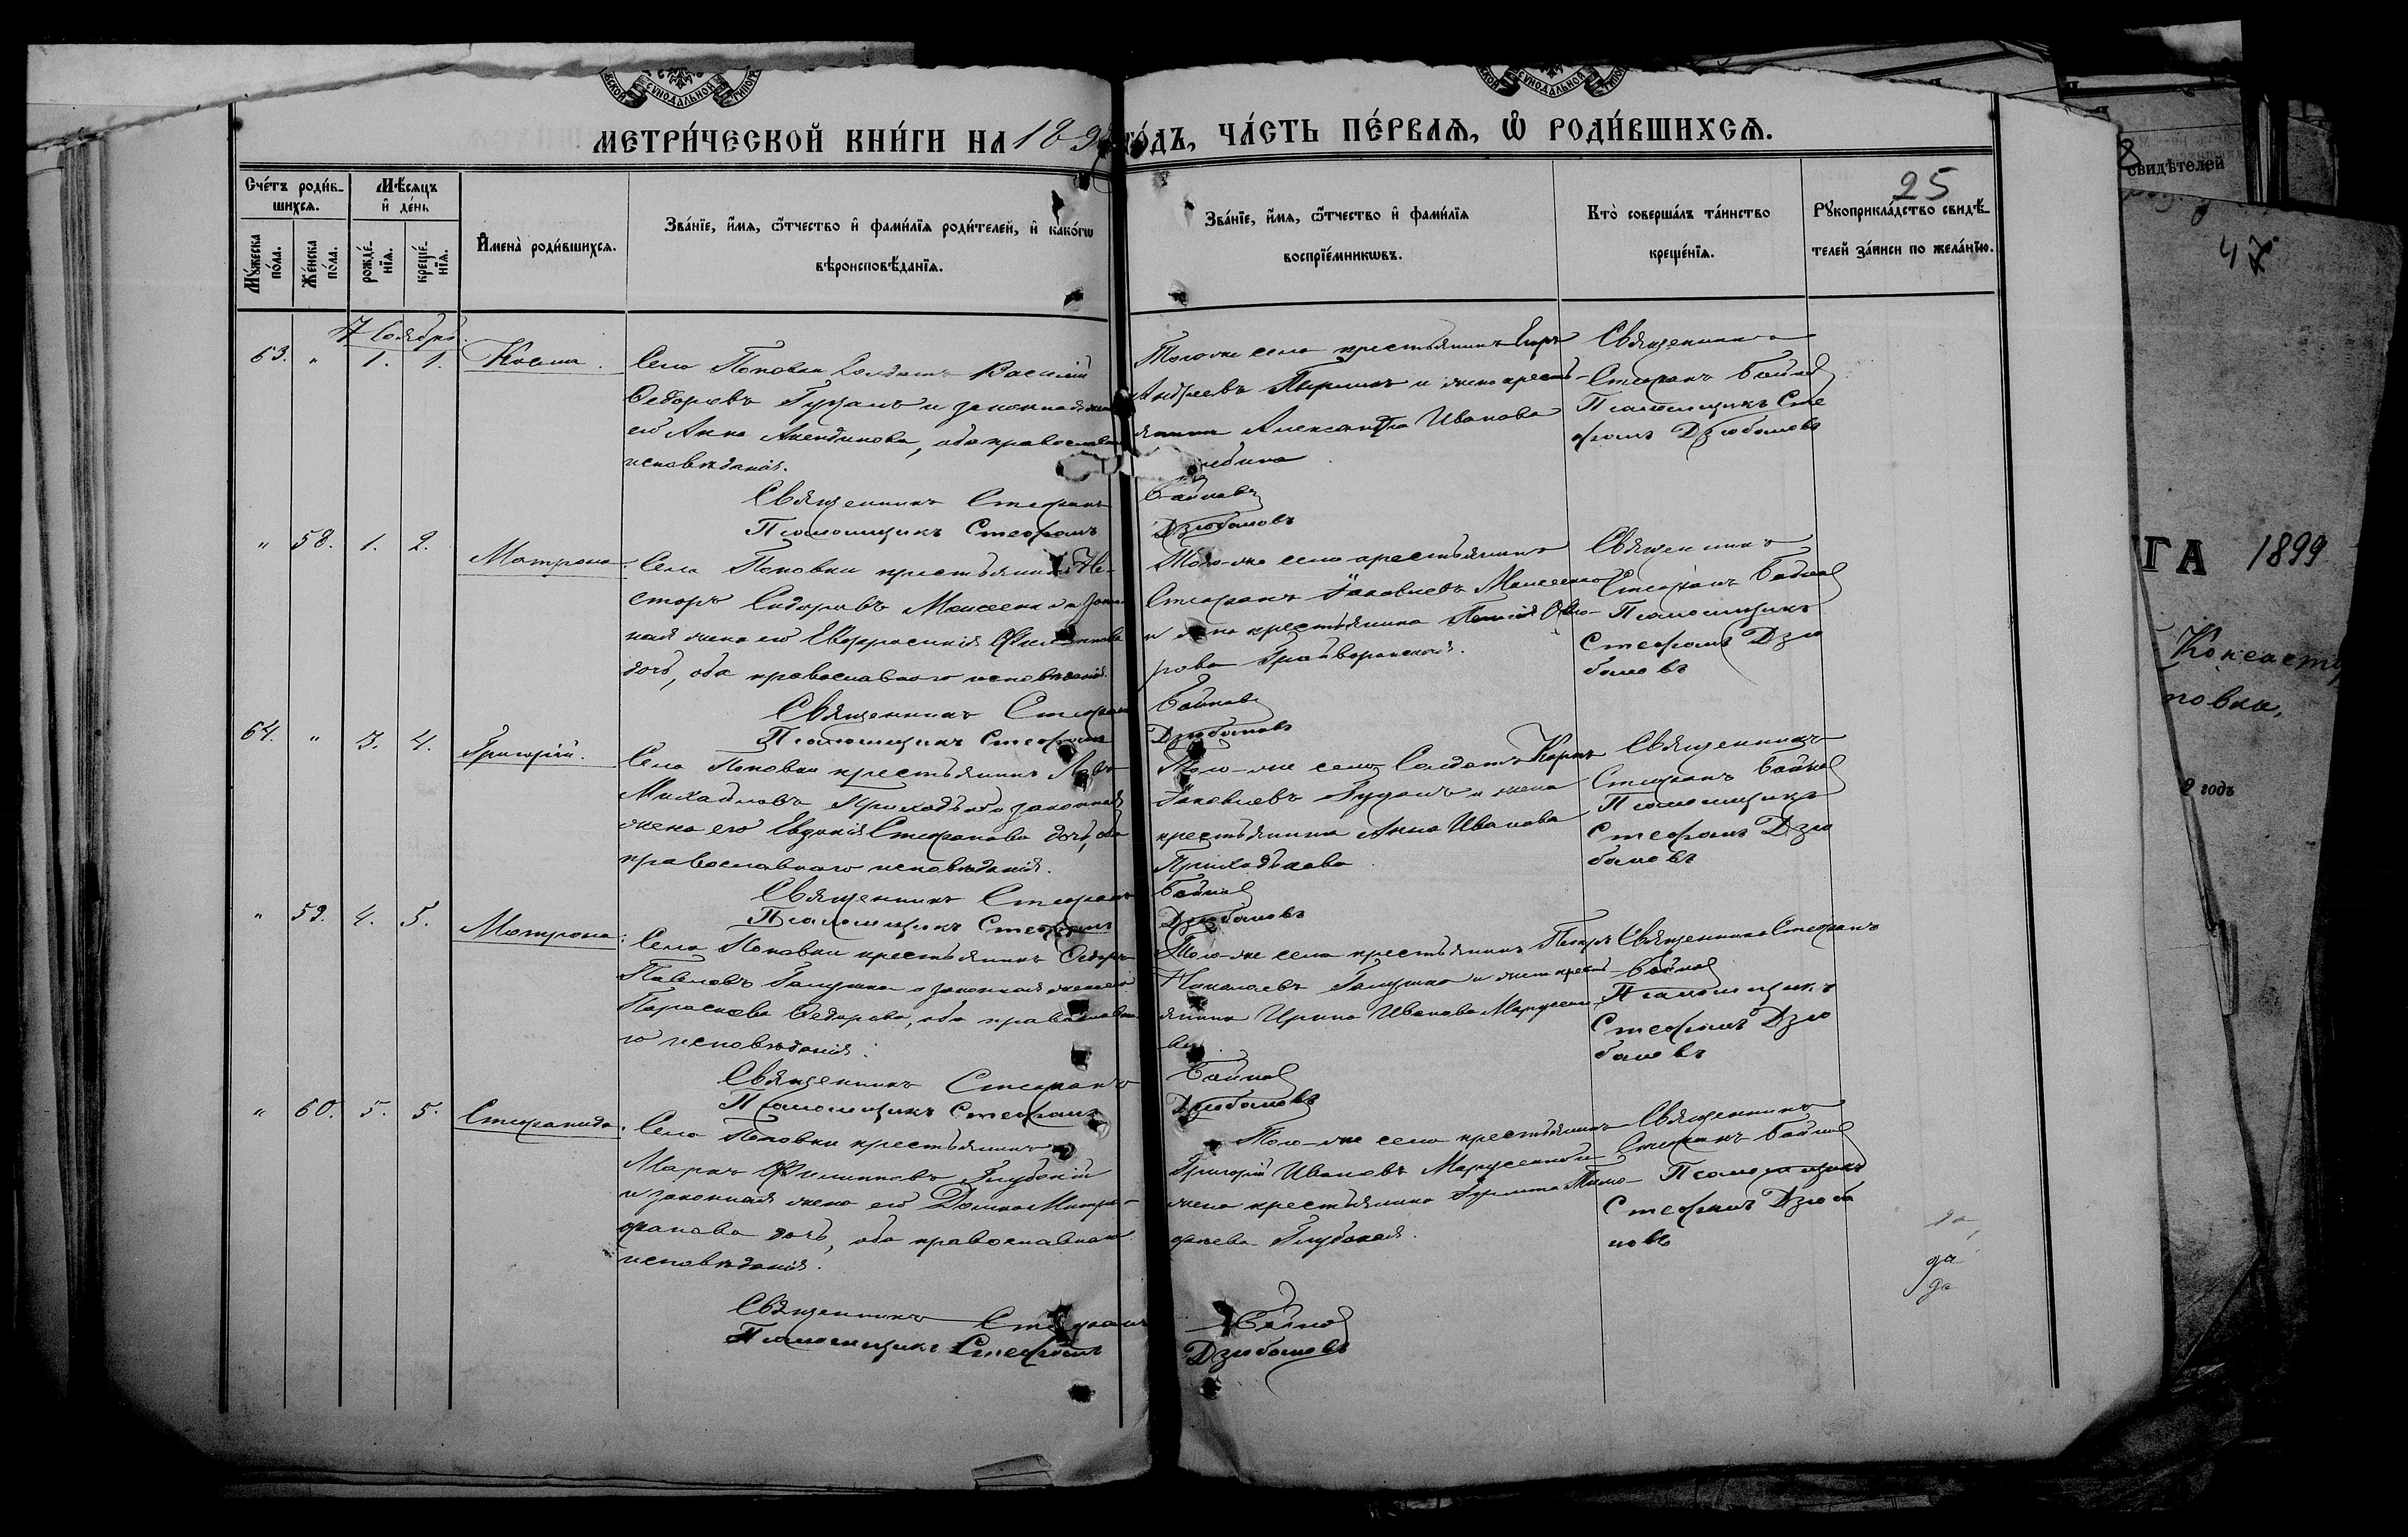 МЕТРИ́ЧЕСКОЙ КНИ́ГИ НА 189 ГО́ДЪ, ЧА́СТЬ ПЕ́РВАѦ, Ѡ РОДИ́ВШИХСѦ.
25
Сче́тъ роди́в-
шихсѧ.
Мѣ́сѧцъ
и҆ де́нь
Мꙋ́жеска пола.
Же́нска по́ла.
рожде́-
нїѧ.
креще́-
нїѧ.
И҆мена̀ роди́вшихсѧ.
Зва́нїе, и҆́мѧ, ѻ҆́тчество и҆ фами́лїѧ роди́телей, и҆ како́гѡ
вѣроисповѣ́данїѧ.
Зва́нїе, и҆́мѧ, ѻ҆́тчество и҆ фами́лїѧ
воспрїе́мникѡвъ.
Кто̀ соверша́лъ та́инство
креще́нїѧ.
Рꙋкоприкла́дство свидѣ́-
телей за́писи по жела́нїю.
Ноябрь.
63. " 1. 1. Косма.
Села Поповки Солдатъ Василій
Ѳедоровъ Гузанъ и законная жена
его Анна, оба православнаго
исповѣданія.
Священникъ Стефанъ Бойновъ
Псаломщикъ Стефанъ Дзюбановъ
Того-же села крестьянинъ
Андреевъ и жена кресть-
янина Александра Иванова
Священникъ
Стефанъ Бойнов
Псаломщикъ Сте
фанъ Дзюбановъ
" 58. 1. 2. Матрона.
Села Поповки крестьянинъ Не-
сторъ Сидоровъ Моисеенко и закон-
ная жена его Евфросинія Филиппова
дочь, оба православнаго исповѣданія.
Священникъ Стефанъ Бойнов
Псаломщикъ Стефанъ Дзюбановъ
Того-же села крестьянинъ
Стефанъ Яковлевъ Моисеенко
и жена крестьянина Ѳедо-
рова Грайворонская.
Священникъ
Стефанъ Бойнов
Псаломщикъ
Стефанъ Дзю
бановъ
64. " 3. 4. Григорій.
Села Поповки крестьянинъ
Михайловъ Приходько и законная
жена его Евдокія Стефанова дочь, оба
православнаго исповѣданія.
Священникъ Стефанъ Бойнов
Псаломщикъ Стефанъ Дзюбановъ
Того-же села Солдатъ Карпъ
Яковлевъ и жена
крестьянина Анна Иванова
Приходькова
Священникъ
Стефанъ Бойнов
Псаломщикъ
Стефанъ Дзю
бановъ
" 59. 4. 5. Матрона.
Села Поповки крестьянинъ Ѳедоръ
Павловъ Галушка и законная жена его
Параскева Ѳедорова, оба православна-
го исповѣданія.
Священникъ Стефанъ Бойнов
Псаломщикъ Стефанъ Дзюбановъ
Того-же села крестьянинъ Петръ
Николаевъ Галушка и жена кресть-
янина Ирина Иванова
Священникъ Стефанъ
Бойнов
Псаломщикъ
Стефанъ Дзю
бановъ
" 60. 5. 5. Стефанида.
Села Поповки крестьянинъ
Маркъ Филипповъ Глубокій
и законная жена его Домна Митро-
фанова дочь, оба православнаго
исповѣданія.
Священникъ Стефанъ Бойнов
Псаломщикъ Стефанъ Дзюбановъ
Того-же села крестьянинъ
Григорій Ивановъ Марусенко и
жена крестьянина Тимо-
фѣева Глубокая.
Священникъ
Стефанъ Бойнов
Псаломщикъ
Стефанъ Дзюба
новъ
да
да
да
свидѣтелей
ГА 1899
повки,
годъ